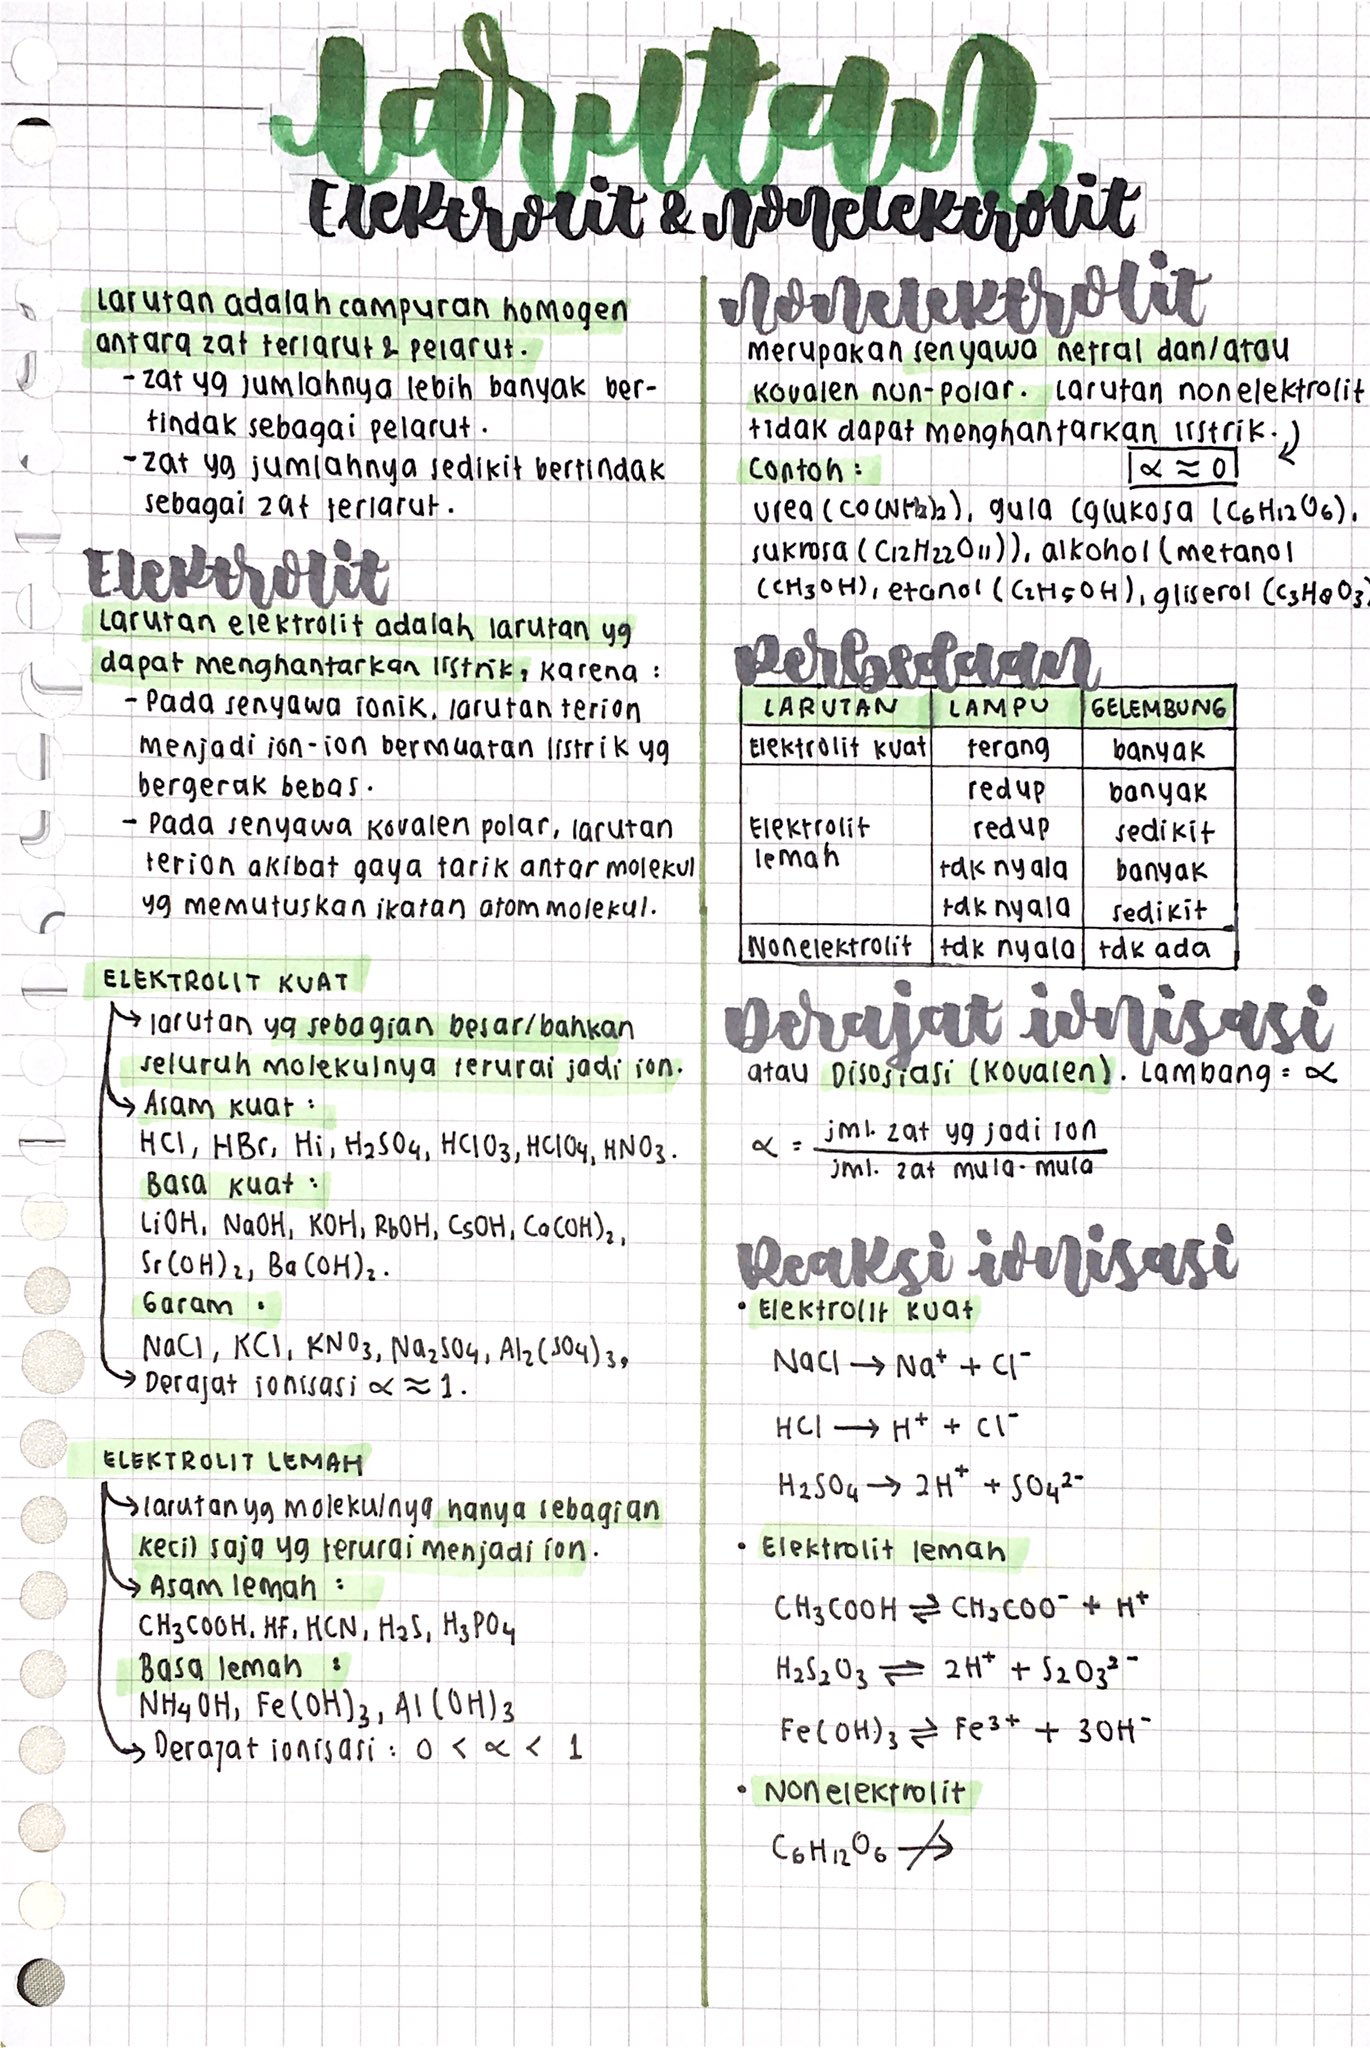 Larutan
Elektrolit & Nonelektrolit
Larutan adalah campuran homogen
antara zat terlarut & pelarut.
- zat yg jumlahnya lebih banyak ber-
tindak sebagai pelarut.
- zat yg jumlahnya sedikit bertindak
sebagai zat terlarut.
Elektrolit
Larutan elektrolit adalah larutan yg
dapat menghantarkan listrik, karena :
- Pada senyawa ionik, larutan terion
menjadi ion-ion bermuatan listrik yg
bergerak bebas.
- Pada senyawa kovalen polar, larutan
terion akibat gaya tarik antar molekul
yg memutuskan ikatan atom molekul.
ELEKTROLIT KUAT
→ larutan yg sebagian besar/bahkan
seluruh molekulnya terurai jadi ion.
→ Asam kuat :
HCl, HBr, Hi, H₂SO₄, HClO₃, HClO₄, HNO₃.
Basa kuat :
LiOH, NaOH, KOH, RbOH, CsOH, Ca(OH)₂,
Sr(OH)₂, Ba(OH)₂.
Garam :
NaCl, KCl, KNO₃, Na₂SO₄, Al₂(SO₄)₃,
→ Derajat ionisasi α ≈ 1.
ELEKTROLIT LEMAH
→ larutan yg molekulnya hanya sebagian
kecil saja yg terurai menjadi ion.
→ Asam lemah :
CH₃COOH, HF, HCN, H₂S, H₃PO₄
Basa lemah :
NH₄OH, Fe(OH)₃, Al(OH)₃
→ Derajat ionisasi : 0 < α < 1
Nonelektrolit
merupakan senyawa netral dan/atau
kovalen non-polar. Larutan nonelektrolit
tidak dapat menghantarkan listrik.
α ≈ 0
Contoh :
urea (CO(NH₂)₂), gula (glukosa (C₆H₁₂O₆),
sukrosa (C₁₂H₂₂O₁₁)), alkohol (metanol
(CH₃OH), etanol (C₂H₅OH), gliserol (C₃H₈O₃)
Perbedaan
LARUTAN LAMPU GELEMBUNG
Elektrolit kuat terang banyak
redup banyak
Elektrolit redup sedikit
lemah tdk nyala banyak
tdk nyala sedikit
Nonelektrolit tdk nyala tdk ada
Derajat ionisasi
atau Disosiasi (kovalen). Lambang = α
α = jml. zat yg jadi ion
jml. zat mula-mula
Reaksi ionisasi
• Elektrolit kuat
NaCl → Na⁺ + Cl⁻
HCl → H⁺ + Cl⁻
H₂SO₄ → 2H⁺ + SO₄²⁻
• Elektrolit lemah
CH₃COOH ⇌ CH₃COO⁻ + H⁺
H₂S₂O₃ ⇌ 2H⁺ + S₂O₃²⁻
Fe(OH)₃ ⇌ Fe³⁺ + 3OH⁻
• Nonelektrolit
C₆H₁₂O₆ ↛